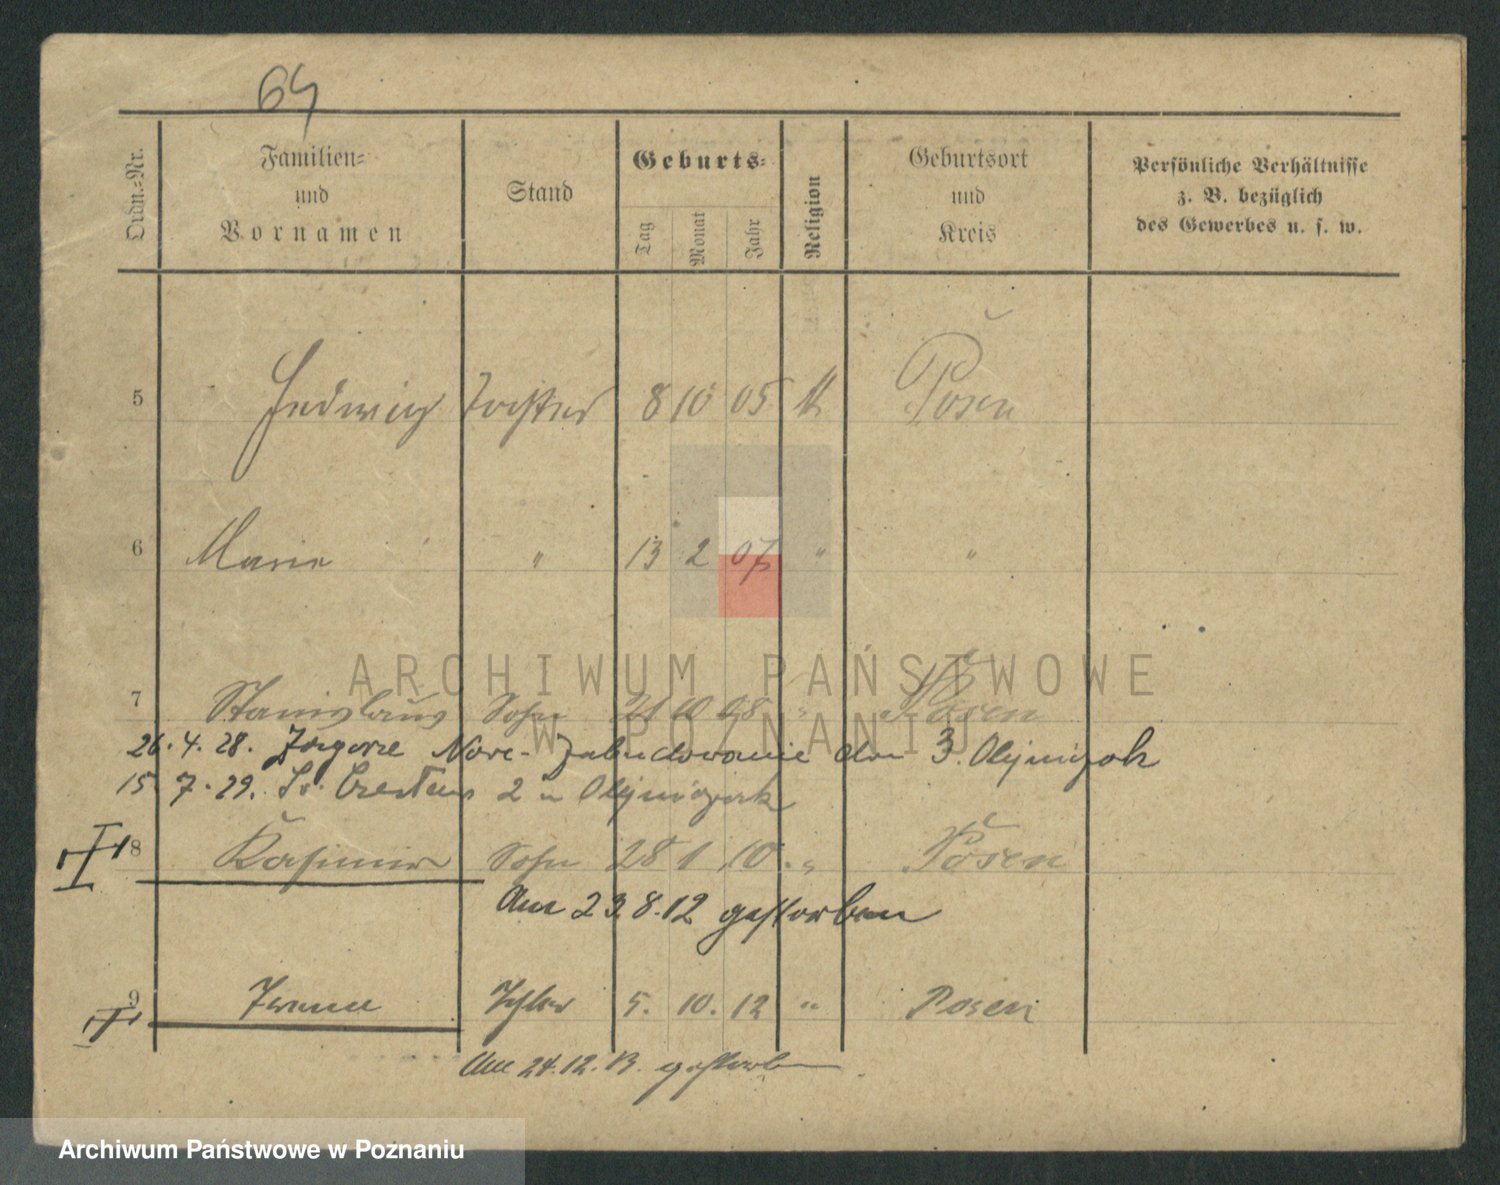 64
Ordn.-Nr.
Familien-
und
Vornamen
Stand
Geburts-
Tag
Monat
Jahr
Religion
Geburtsort
und
Kreis
Persönliche Verhältnisse
z. B. bezüglich
des Gewerbes u. s. w.
5 Hedwig Tochter 8 10 05 k Posen
6 Marie " 13 2 07 " "
ARCHIWUM PAŃSTWOWE
W POZNANIU
7 Stanislaus Sohn 21 10 08 " Posen
26.4.28. 3.
15.7.29. 2
8 Kasimir Sohn 28 1 10 " Posen
Am 23.8.12 gestorben
9 Irene Tchter 5. 10. 12 " Posen
Am 24.12.13. gestorben
Archiwum Państwowe w Poznaniu